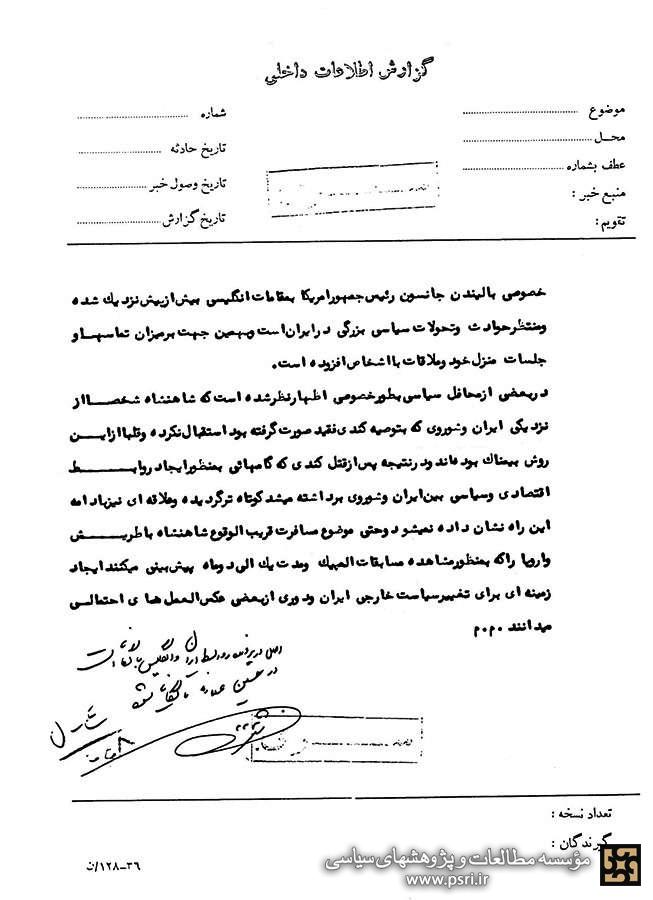 گزارش اطلاعات داخلی
موضوع
محل
عطف بشماره
منبع خبر :
تقویم :
شماره
تاریخ حادثه
تاریخ وصول خبر
تاریخ گزارش
خصوصی با لیندن جانسون رئیس جمهور امریکا بمقامات انگلیسی بیش از پیش نزدیک شده
ومنتظر حوادث وتحولات سیاسی بزرگی در ایران است وبهمین جهت برمیزان تماسها و
جلسات منزل خود وملاقات با اشخاص افزوده است .
در بعضی از محافل سیاسی بطور خصوصی اظهار نظر شده است که شاهنشاه شخصا از
نزدیکی ایران وشوروی که بتوصیه کندی فقید صورت گرفته بود استقبال نکرده وقلبا از این
روش بیمناک بوده اند ودر نتیجه پس از قتل کندی که گامهائی بمنظور ایجاد روابط
اقتصادی وسیاسی بین ایران وشوروی برداشته میشد کوتاه تر گردیده وعلاقه ای نیز بادامه
این راه نشان داده نمیشود وحتی موضوع مسافرت قریب الوقوع شاهنشاه باطریش
واروپا راکه بمنظور مشاهده مسابقات المپیک ومدت یک الی دوماه پیش بینی میکنند ایجاد
زمینه ای برای تغییر سیاست خارجی ایران ودوری از بعضی عکس العمل های احتمالی
میدانند م.م
اصل در پرونده روابط ایران و انگلیس بایگانی است
در
تعداد نسخه :
گیرندگان :
۳۶-۱۲۸/ن
مؤسسه مطالعات و پژوهشهای سیاسی
www.psri.ir